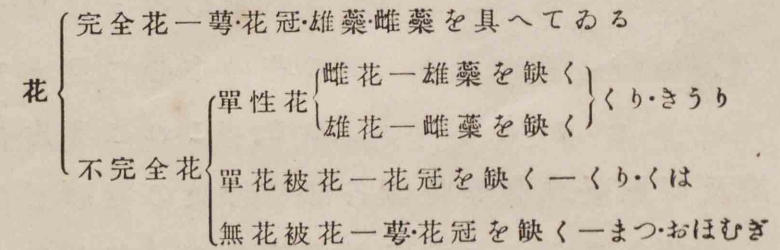 花
完全花―萼・花冠・雄蘂・雌蘂を具へてゐる
不完全花
單性花
雌花―雄蘂を缺く
雄花―雌蘂を缺く
くり・きうり
單花被花―花冠を缺く―くり・くは
無花被花―萼・花冠を缺く―まつ・おほむぎ